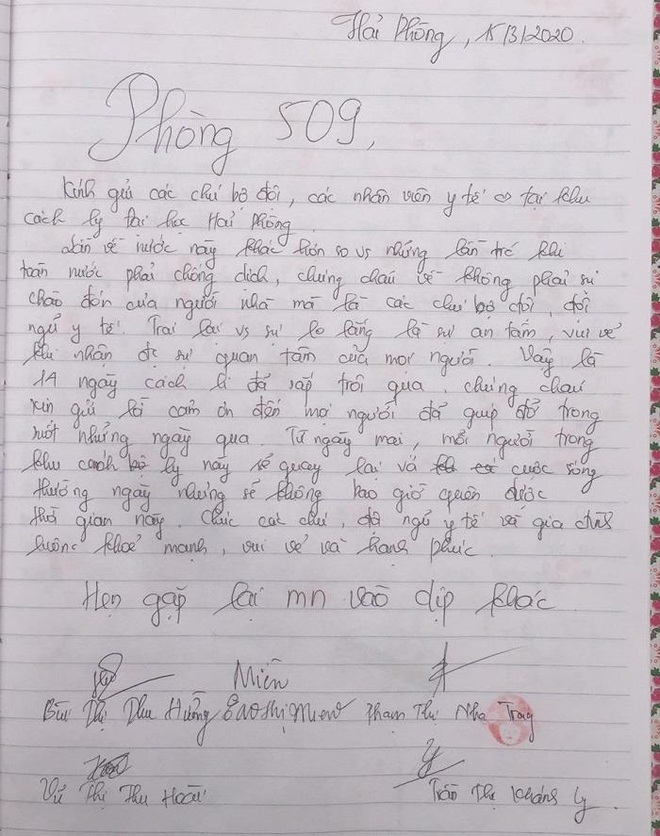 Hải Phòng, 15/3/2020.
Phòng 509,
Kính gửi các chú bộ đội, các nhân viên y tế tại khu
cách ly tại học Hải Phòng.
Lần về nước này khác hơn so vs những lần trc khi
toàn nước phải chống dịch, chúng cháu về không phải sự
chào đón của người nhà mà là các chú bộ đội, đội
ngũ y tế. Trái lại vs sự lo lắng là sự an tâm, vui vẻ
khi nhận đc sự quan tâm của mọi người. Vậy là
14 ngày cách li đã sắp trôi qua, chúng cháu
xin gửi lời cảm ơn đến mọi người đã giúp đỡ trong
suốt những ngày qua. Từ ngày mai, mỗi người trong
khu cách ly này sẽ quay lại vs cuộc sống
thường ngày nhưng sẽ không bao giờ quên được
thời gian này. Chúc các chú, đội ngũ y tế và gia đình
luôn khoẻ mạnh, vui vẻ và hạnh phúc.
Hẹn gặp lại mn vào dịp khác
Miên
Bùi Thị Thu Hường Đào Thị Miên Phạm Thị Nha Trang
Vũ Thị Thu Hoài Trần Thị Khánh Ly